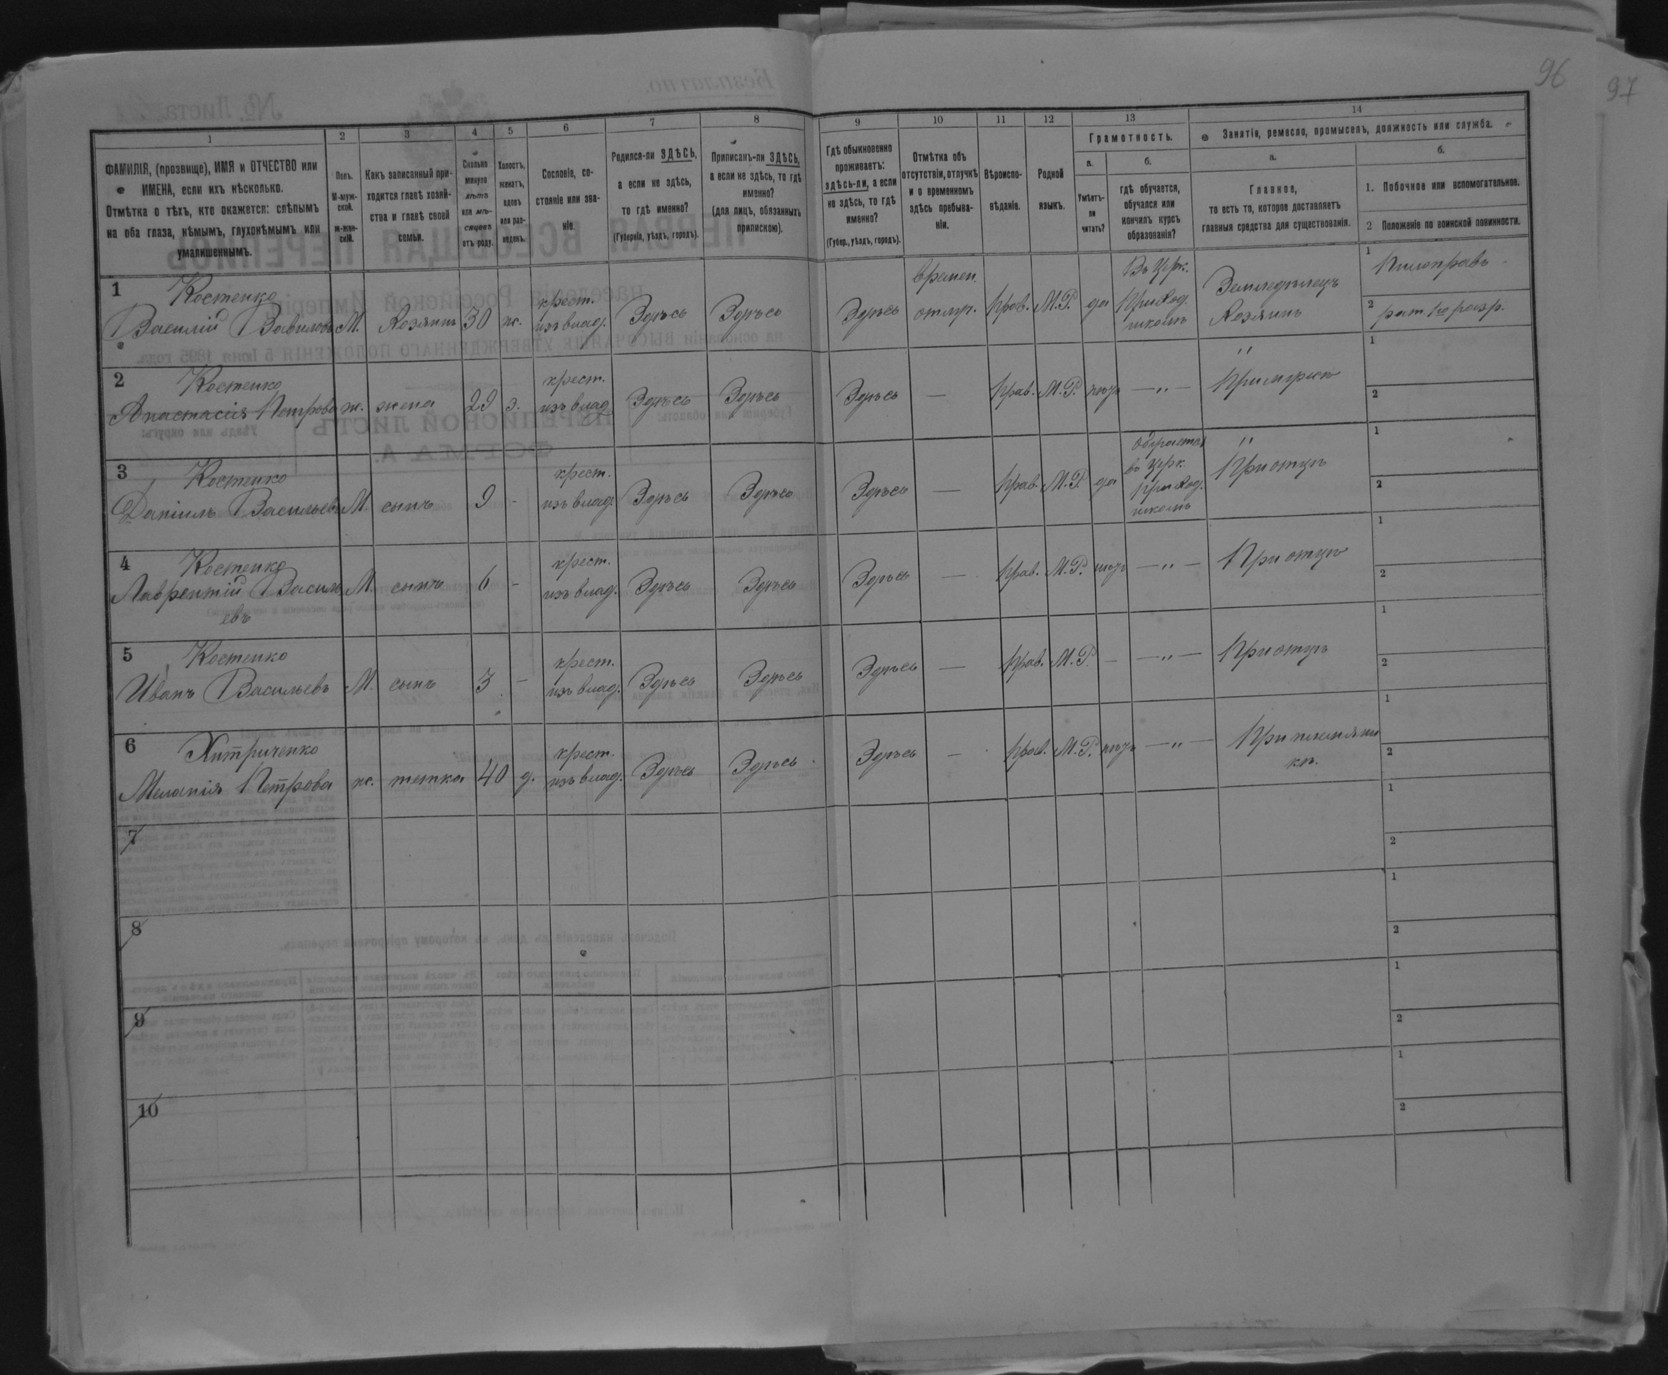 96
97
1
2
3
4
5
6
7
8
9
10
11
12
13
14
ФАМИЛІЯ, (прозвище), ИМЯ и ОТЧЕСТВО или
ИМЕНА, если ихъ нѣсколько.
Отмѣтка о тѣхъ, кто окажется: слѣпымъ
на оба глаза, нѣмымъ, глухонѣмымъ или
умалишеннымъ.
Полъ.
М-муж-
ской.
ж-жен-
скій.
Какъ записанный при-
ходится главѣ хозяй-
ства и главѣ своей
семьи.
Сколько
минуло
лѣтъ
или мѣ-
сяцевъ
отъ роду.
Холостъ,
женатъ,
вдовъ
или раз-
веденъ.
Сословіе, со-
стояніе или зва-
ніе.
Родился-ли ЗДѢСЬ,
а если не здѣсь,
то гдѣ именно?
(Губернія, уѣздъ, городъ).
Приписанъ-ли ЗДѢСЬ,
а если не здѣсь, то гдѣ
именно?
(для лицъ, обязанныхъ
припискою).
Гдѣ обыкновенно
проживаетъ:
здѣсь-ли, а если
не здѣсь, то гдѣ
именно?
(Губер., уѣздъ, городъ).
Отмѣтка объ
отсутствіи, отлучкѣ
и о временномъ
здѣсь пребыва-
ніи.
Вѣроиспо-
вѣданіе.
Родной
языкъ.
Грамотность.
а.
Умѣетъ-
ли
читать?
б.
гдѣ обучается,
обучался или
кончилъ курсъ
образованія?
Занятіе, ремесло, промыселъ, должность или служба.
а.
Главное,
то есть то, которое доставляетъ
главныя средства для существованія.
б.
1. Побочное или вспомогательное.
2 Положеніе по воинской повинности.
1
Костенко
Василій Вавиловъ М. хозяинъ 30 ж. крест. изъ влад. Здѣсь Здѣсь Здѣсь времен. отлуч. прав. М.Р. да Въ церк. приход. школѣ Земледѣлецъ Хозяинъ
1
2 рат. 1го разр.
2
Костенко
Анастасія Петрова ж. жена 29 з. крест. изъ влад. Здѣсь Здѣсь Здѣсь — прав. М.Р. нѣтъ — „ — При мужѣ
1
2
3
Костенко
Даніилъ Васильевъ М. сынъ 9 - крест. изъ влад. Здѣсь Здѣсь Здѣсь — прав. М.Р. да обучается въ церк. приход. школѣ При отцѣ
1
2
4
Костенко
Лаврентій Василь
евъ М. сынъ 6 - крест. изъ влад. Здѣсь Здѣсь Здѣсь — прав. М.Р. нѣтъ — „ — При отцѣ
1
2
5
Костенко
Иванъ Васильевъ М. сынъ 3 - крест. изъ влад. Здѣсь Здѣсь Здѣсь — прав. М.Р. — — „ — При отцѣ
1
2
6
Хитриченко
Меланія Петрова ж. тетка 40 д. крест. изъ влад. Здѣсь Здѣсь Здѣсь — прав. М.Р. нѣтъ — „ — При племянни
кѣ.
1
2
7
1
2
8
1
2
9
1
2
10
1
2